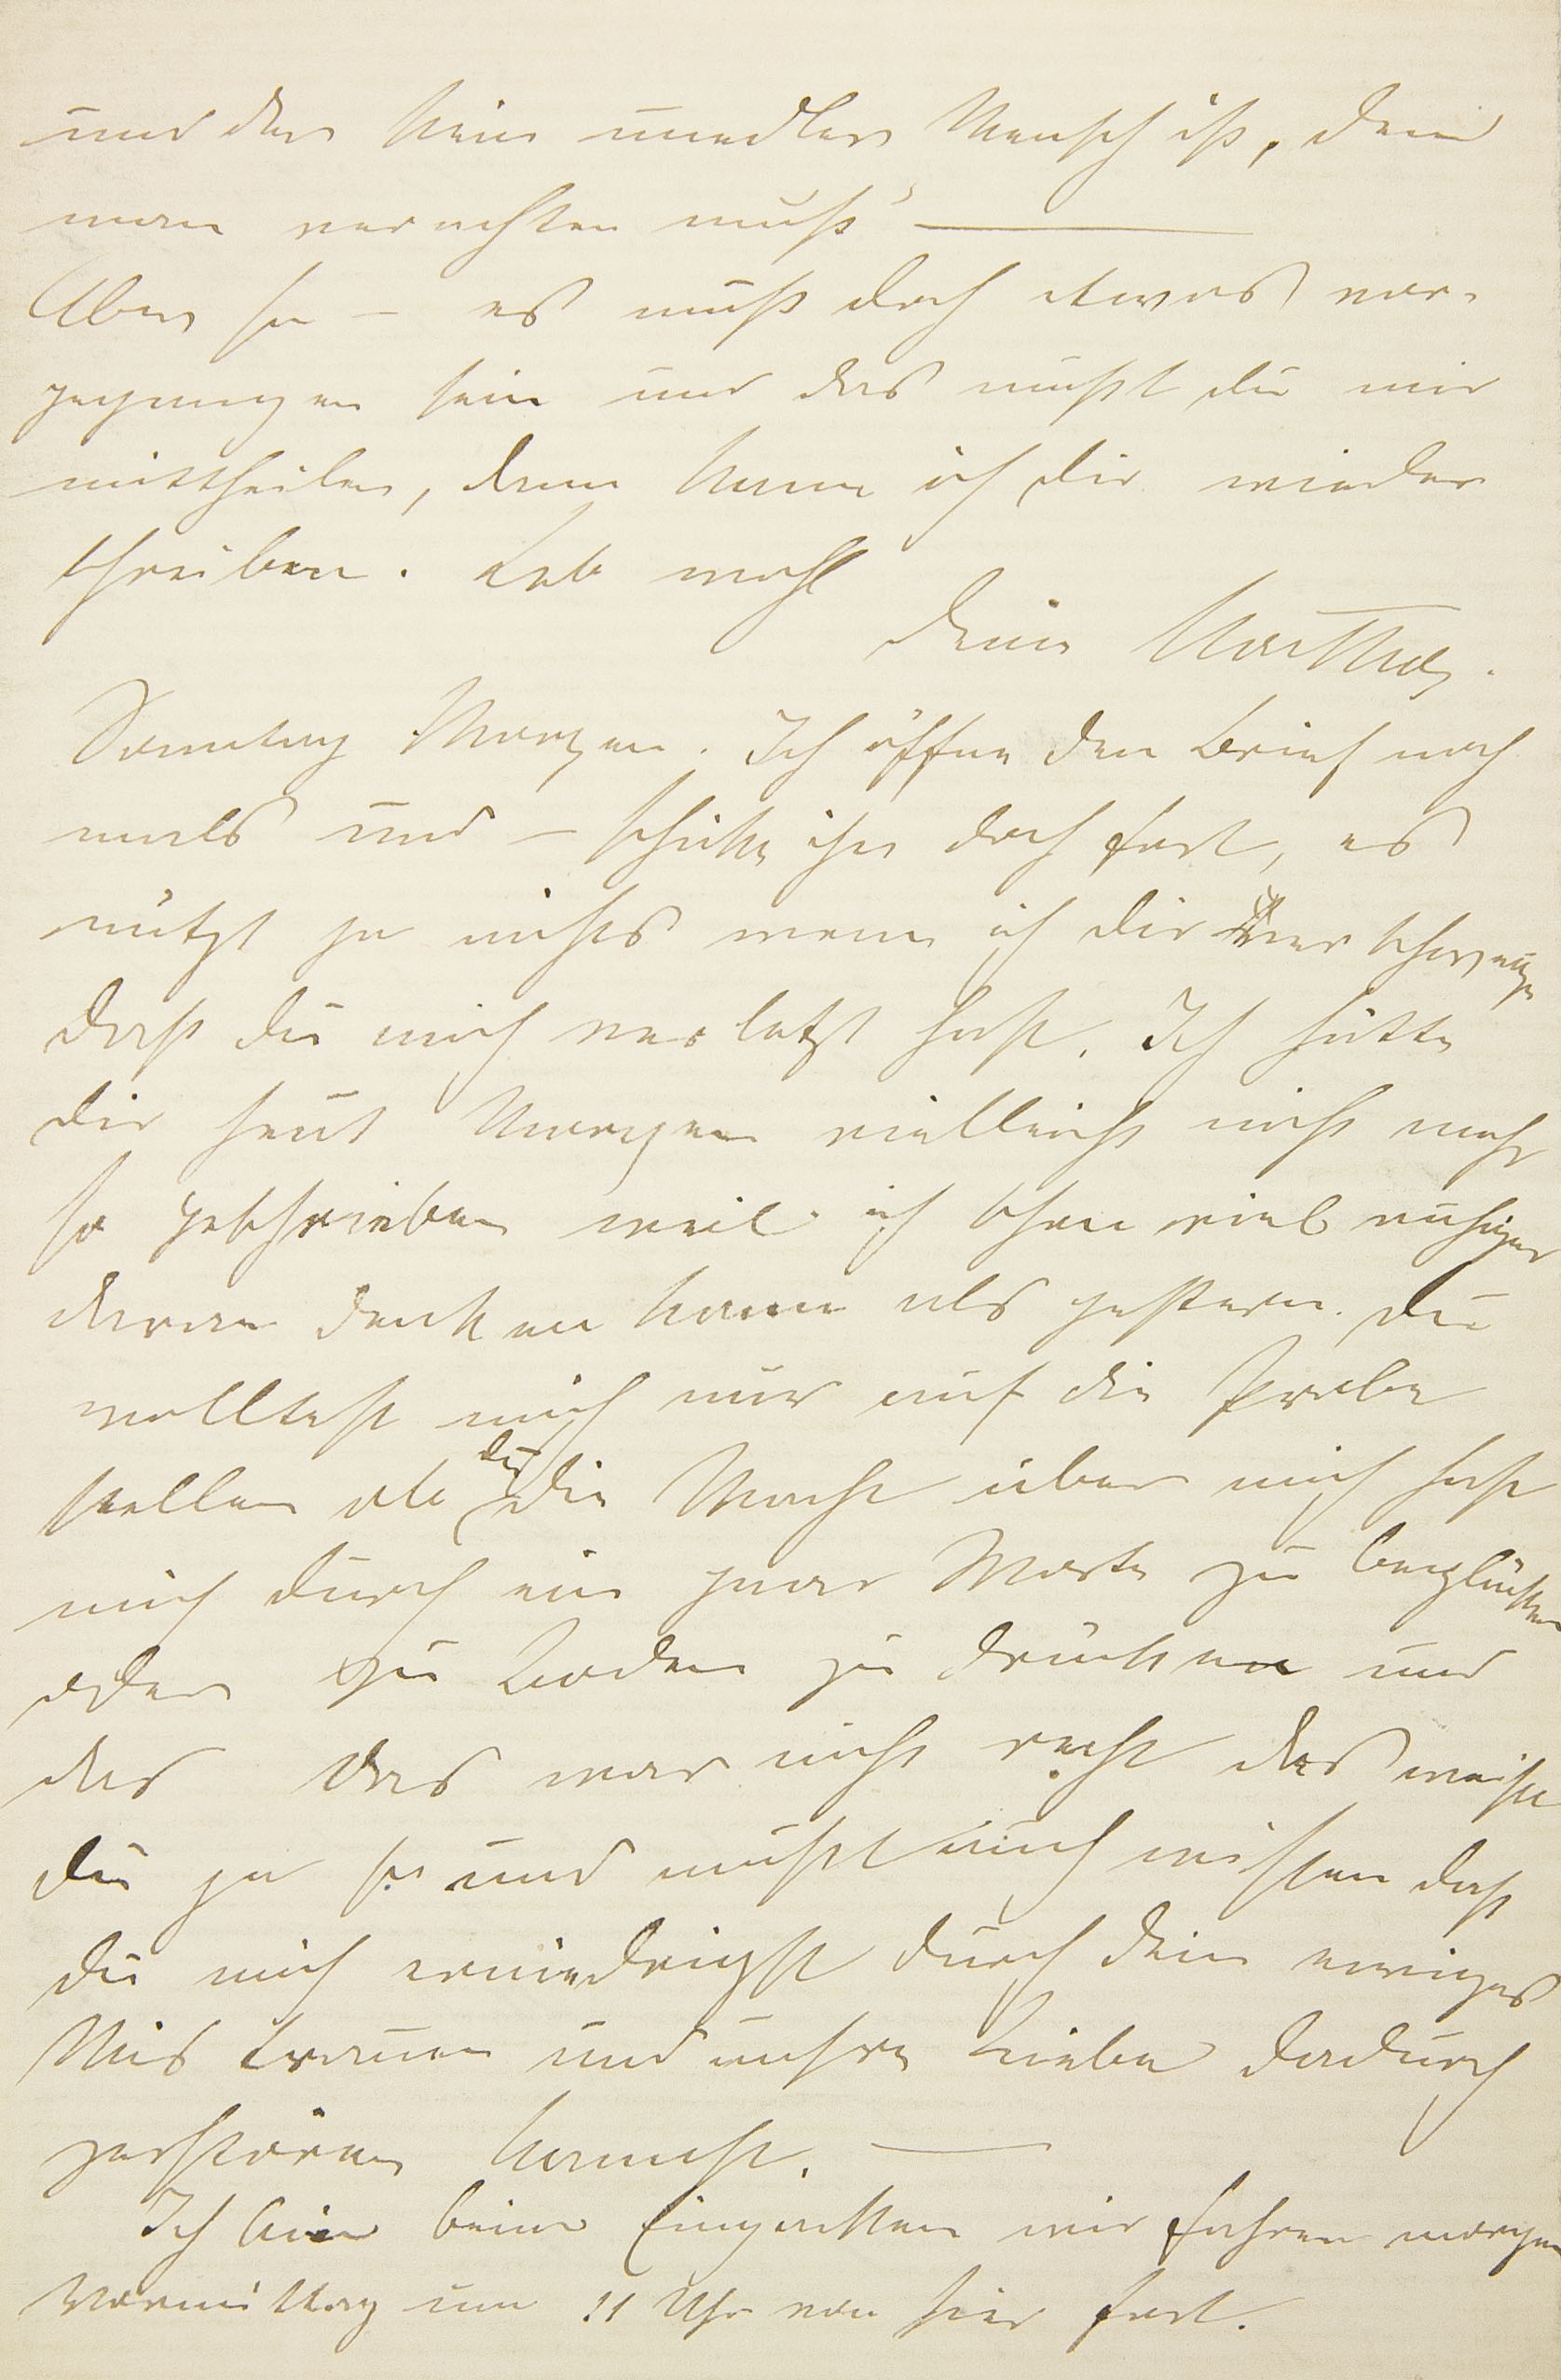 und der kein unedler Mensch ist, den
man verachten muß" —
Aber so — es muß doch etwas vor-
gegangen sein und das mußt du mir
mittheilen, dann kann ich dir wieder
schreiben. Leb wohl
dein Matthes.
Sonntag Morgen. Ich öffne den Brief noch
mals und — schicke ihn doch fort, es
nützt ja nichts wenn ich dir verschweige
daß du mich verletzt hast. Ich hätte
dir heut Morgen vielleicht nicht mehr
so geschrieben weil ich schon viel ruhiger
daran denken kann als gestern. du
wolltest mich nur auf die Probe
stellen ob du die Macht über mich hast
mich durch ein paar Worte zu beglücken
oder zu Boden zu drücken und
das das war nicht recht das weißt
du ja so und mußt auch wissen daß
du mich erniedrigst durch dein ewiges
Mistrauen und unsre Liebe dadurch
zerstören kannst. —
Ich bin beim Einpacken wir fahren morgen
Vormittag um 11 Uhr von hier fort.